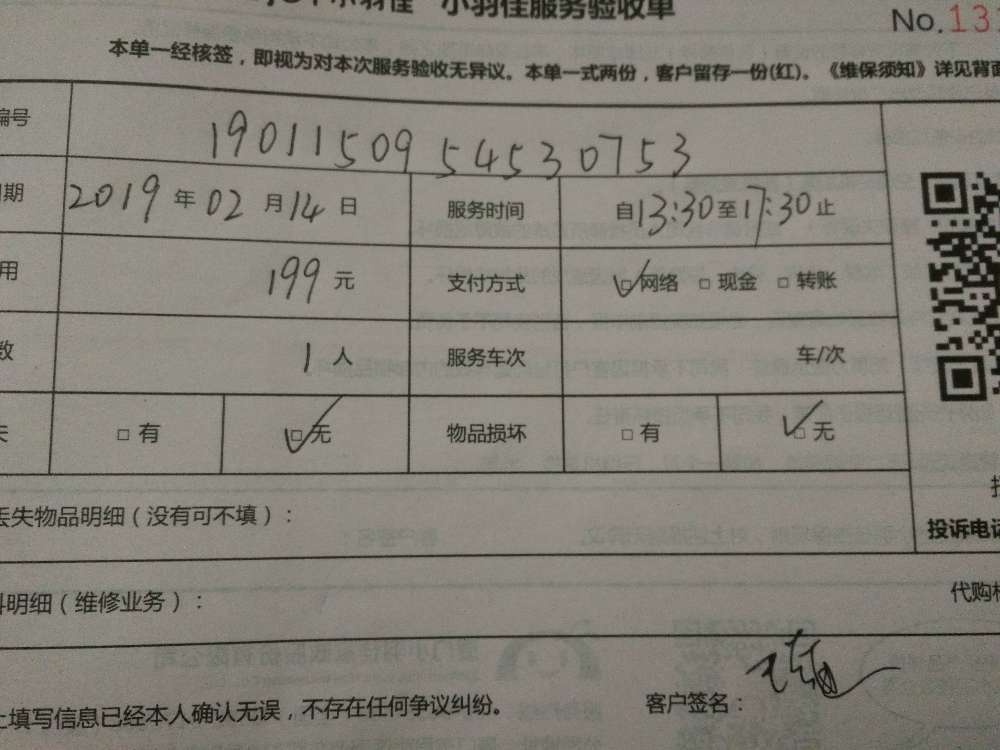 小羽佳服务验收单
No.13
本单一经核签，即视为对本次服务验收无异议。本单一式两份，客户留存一份(红)。《维保须知》详见背面
编号 19011509 54530753
期 2019年02月14日 服务时间 自13:30至17:30止
用 199元 支付方式 ☑网络 □现金 □转账
数 1人 服务车次 车/次
失 □有 ☑无 物品损坏 □有 ☑无
丢失物品明细（没有可不填）：
投诉电话
料明细（维修业务）： 代购
上填写信息已经本人确认无误，不存在任何争议纠纷。 客户签名：